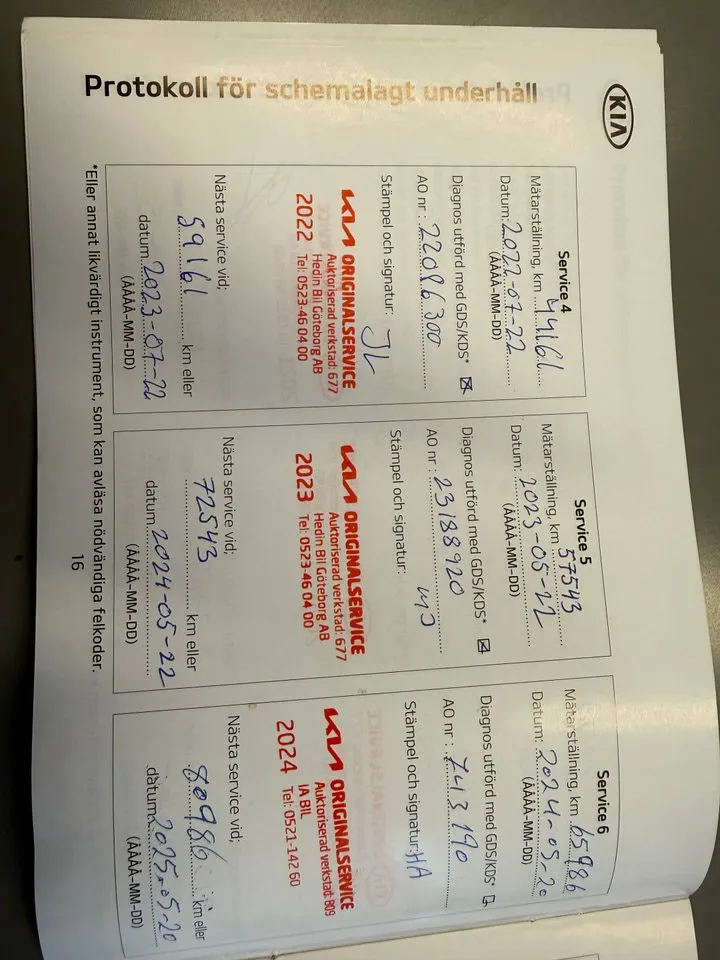 KIA
Protokoll för schemalagt underhåll
Service 4
Mätarställning, km 44161
Datum: 2022-07-22
(ÅÅÅÅ-MM-DD)
Diagnos utförd med GDS/KDS*
AO nr : 22086300
Stämpel och signatur: JL
KIA ORIGINALSERVICE
Auktoriserad verkstad: 677
Hedin Bil Göteborg AB
2022 Tel: 0523-46 04 00
Nästa service vid;
59161 km eller
datum 2023-07-22
(ÅÅÅÅ-MM-DD)
Service 5
Mätarställning, km 57543
Datum: 2023-05-22
(ÅÅÅÅ-MM-DD)
Diagnos utförd med GDS/KDS*
AO nr : 23188920
Stämpel och signatur:
KIA ORIGINALSERVICE
Auktoriserad verkstad: 677
Hedin Bil Göteborg AB
2023 Tel: 0523-46 04 00
Nästa service vid;
72543 km eller
datum 2024-05-22
(ÅÅÅÅ-MM-DD)
Service 6
Mätarställning, km 65986
Datum: 2024-05-20
(ÅÅÅÅ-MM-DD)
Diagnos utförd med GDS/KDS*
AO nr : 743190
Stämpel och signatur: HA
KIA ORIGINALSERVICE
Auktoriserad verkstad: 809
JA BIL
2024 Tel: 0521-142 60
Nästa service vid;
80986 km eller
datum 2025-05-20
(ÅÅÅÅ-MM-DD)
*Eller annat likvärdigt instrument, som kan avläsa nödvändiga felkoder.
16